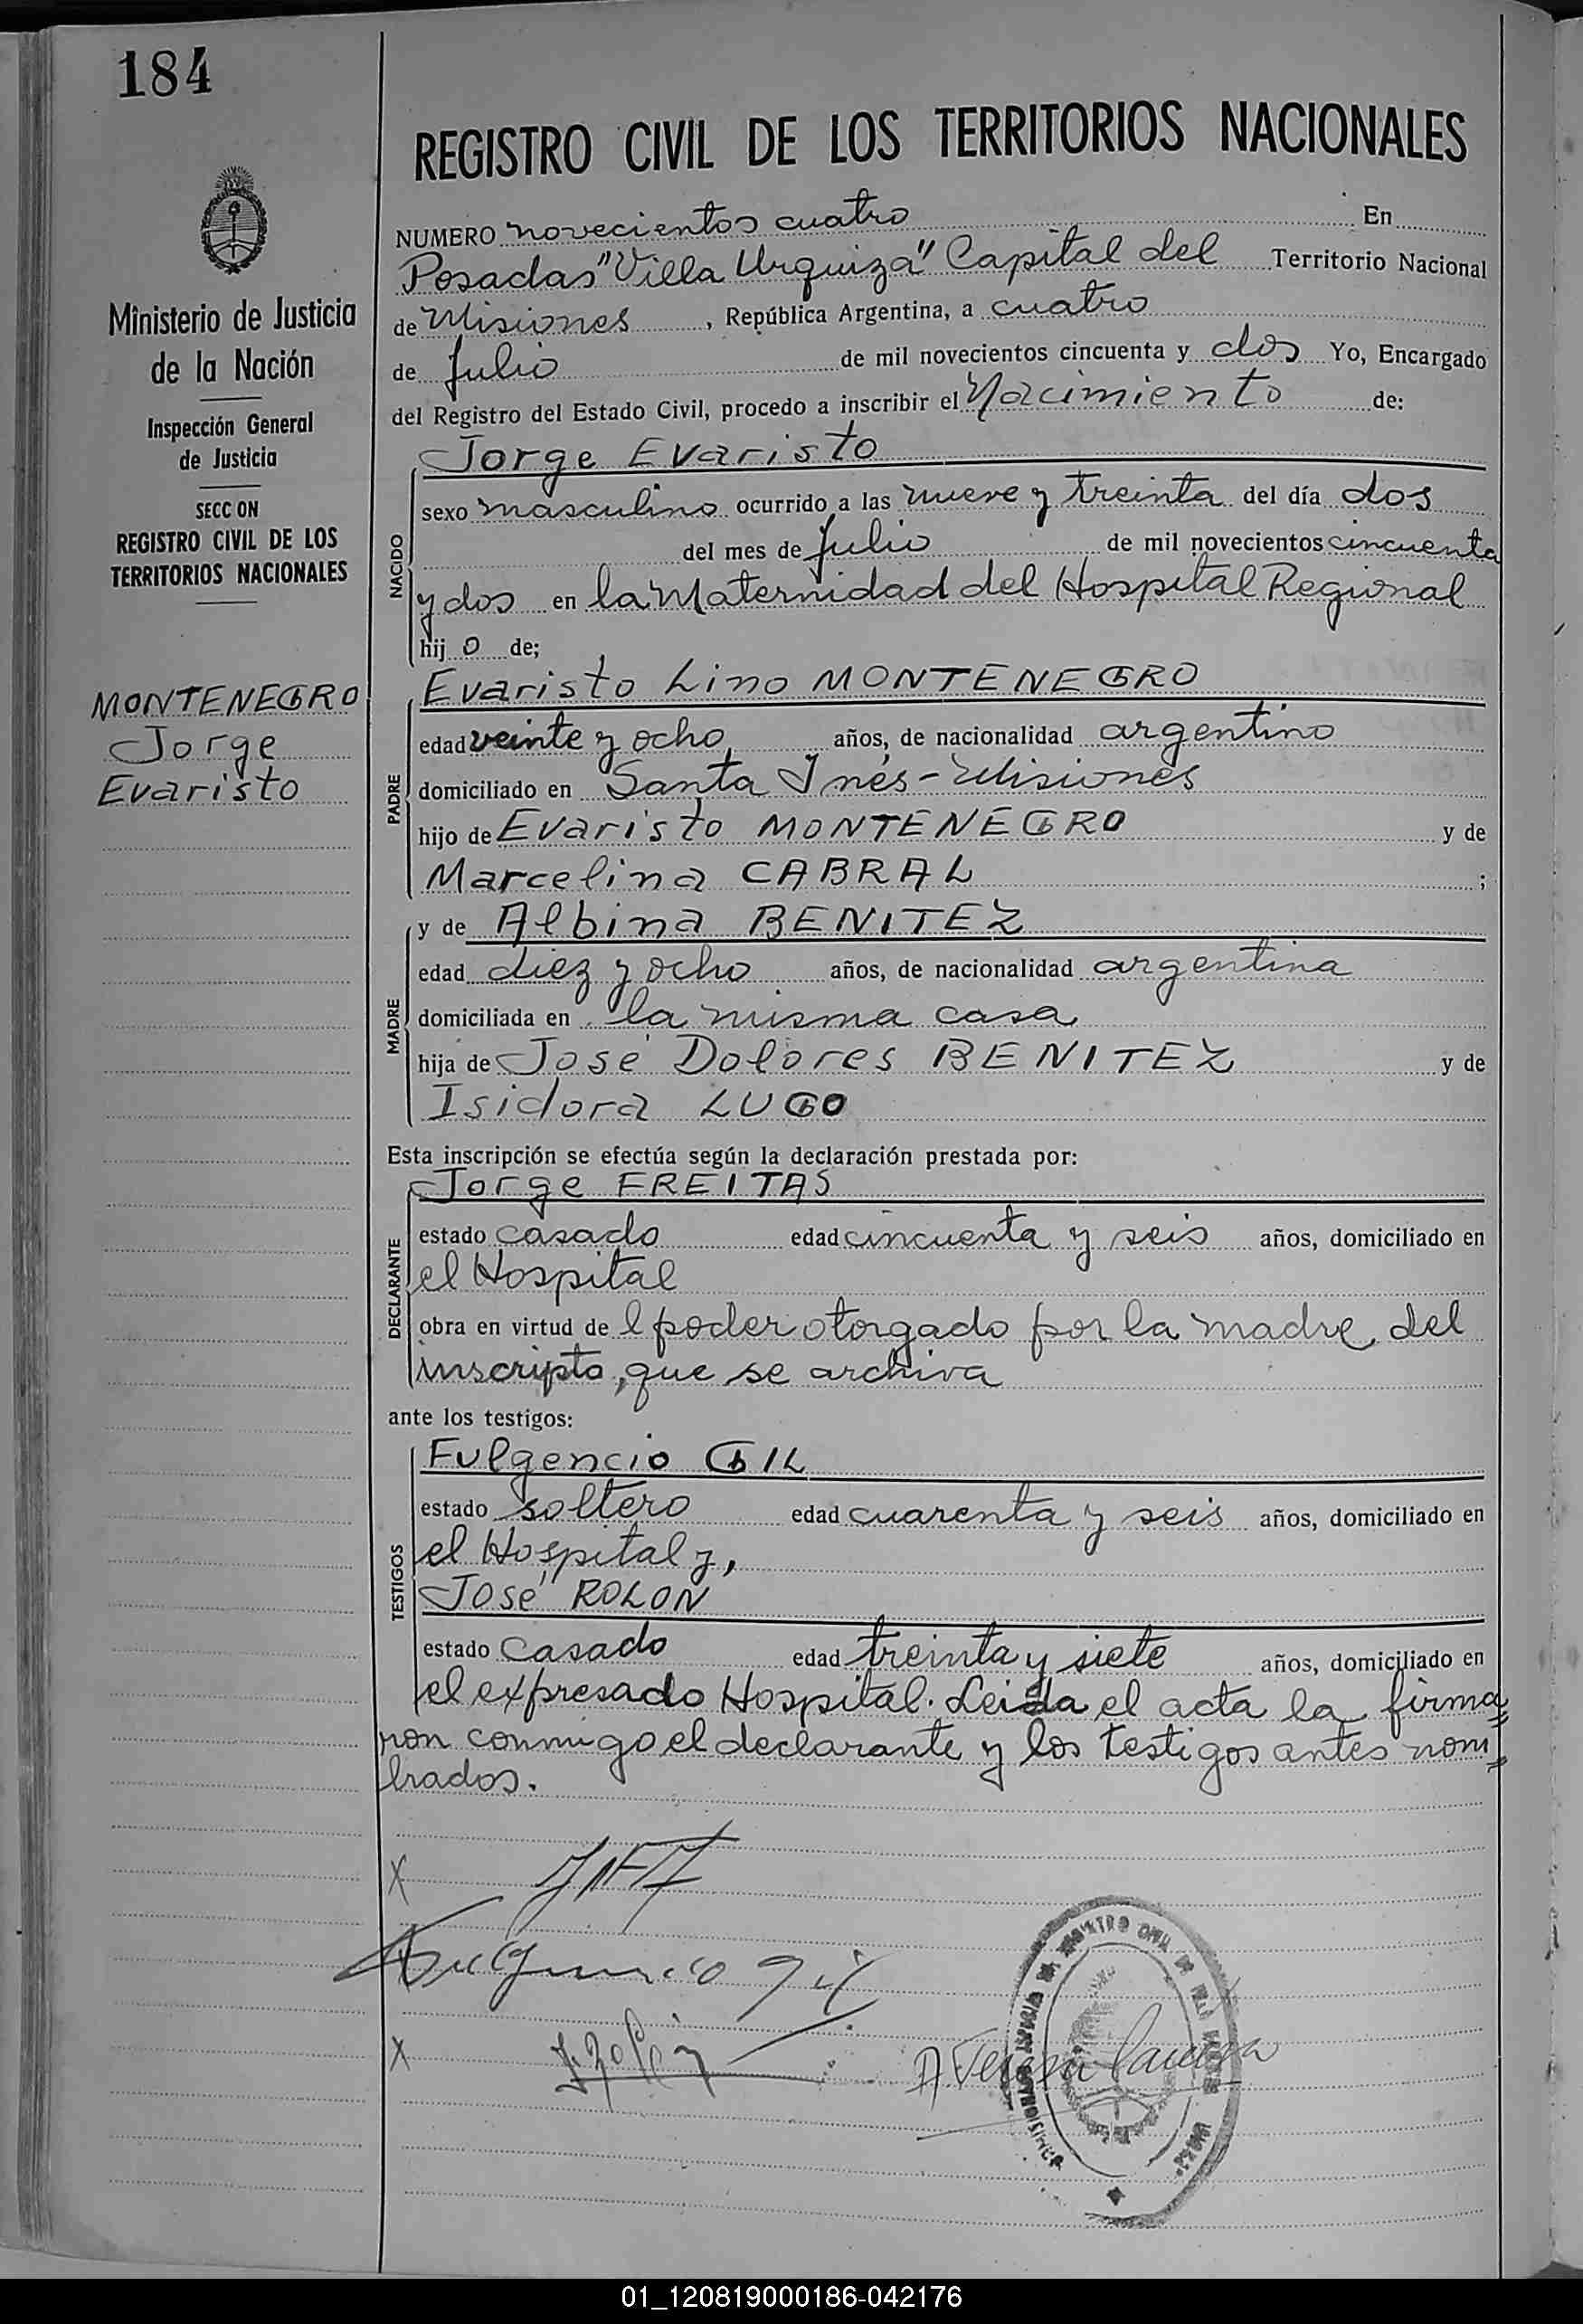 184
Ministerio de Justicia
de la Nación
Inspección General
de Justicia
SECC ON
REGISTRO CIVIL DE LOS
TERRITORIOS NACIONALES
MONTENEGRO
Jorge
Evaristo
REGISTRO CIVIL DE LOS TERRITORIOS NACIONALES
NUMERO novecientos cuatro En
Posadas "Villa Urquiza" Capital del Territorio Nacional
de Misiones, República Argentina, a cuatro
de Julio de mil novecientos cincuenta y dos Yo, Encargado
del Registro del Estado Civil, procedo a inscribir el Nacimiento de:
NACIDO
Jorge Evaristo
sexo masculino ocurrido a las nueve y treinta del día dos
del mes de Julio de mil novecientos cincuenta
y dos en la Maternidad del Hospital Regional
hij o de;
PADRE
Evaristo Lino MONTENEGRO
edad veinte y ocho años, de nacionalidad argentino
domiciliado en Santa Inés - Misiones
hijo de Evaristo MONTENEGRO y de
Marcelina CABRAL ;
MADRE
y de Albina BENITEZ
edad diez y ocho años, de nacionalidad argentina
domiciliada en la misma casa
hija de José Dolores BENITEZ y de
Isidora LUGO
Esta inscripción se efectúa según la declaración prestada por:
DECLARANTE
Jorge FREITAS
estado casado edad cincuenta y seis años, domiciliado en
el Hospital
obra en virtud de l poder otorgado por la madre del
inscripto, que se archiva
ante los testigos:
TESTIGOS
Fulgencio GIL
estado soltero edad cuarenta y seis años, domiciliado en
el Hospital y,
José ROLON
estado casado edad treinta y siete años, domiciliado en
el expresado Hospital. Leida el acta la firma=
ron conmigo el declarante y los testigos antes nom=
brados.
X
Fulgencio Gil
X J. Rolón
01_120819000186-042176